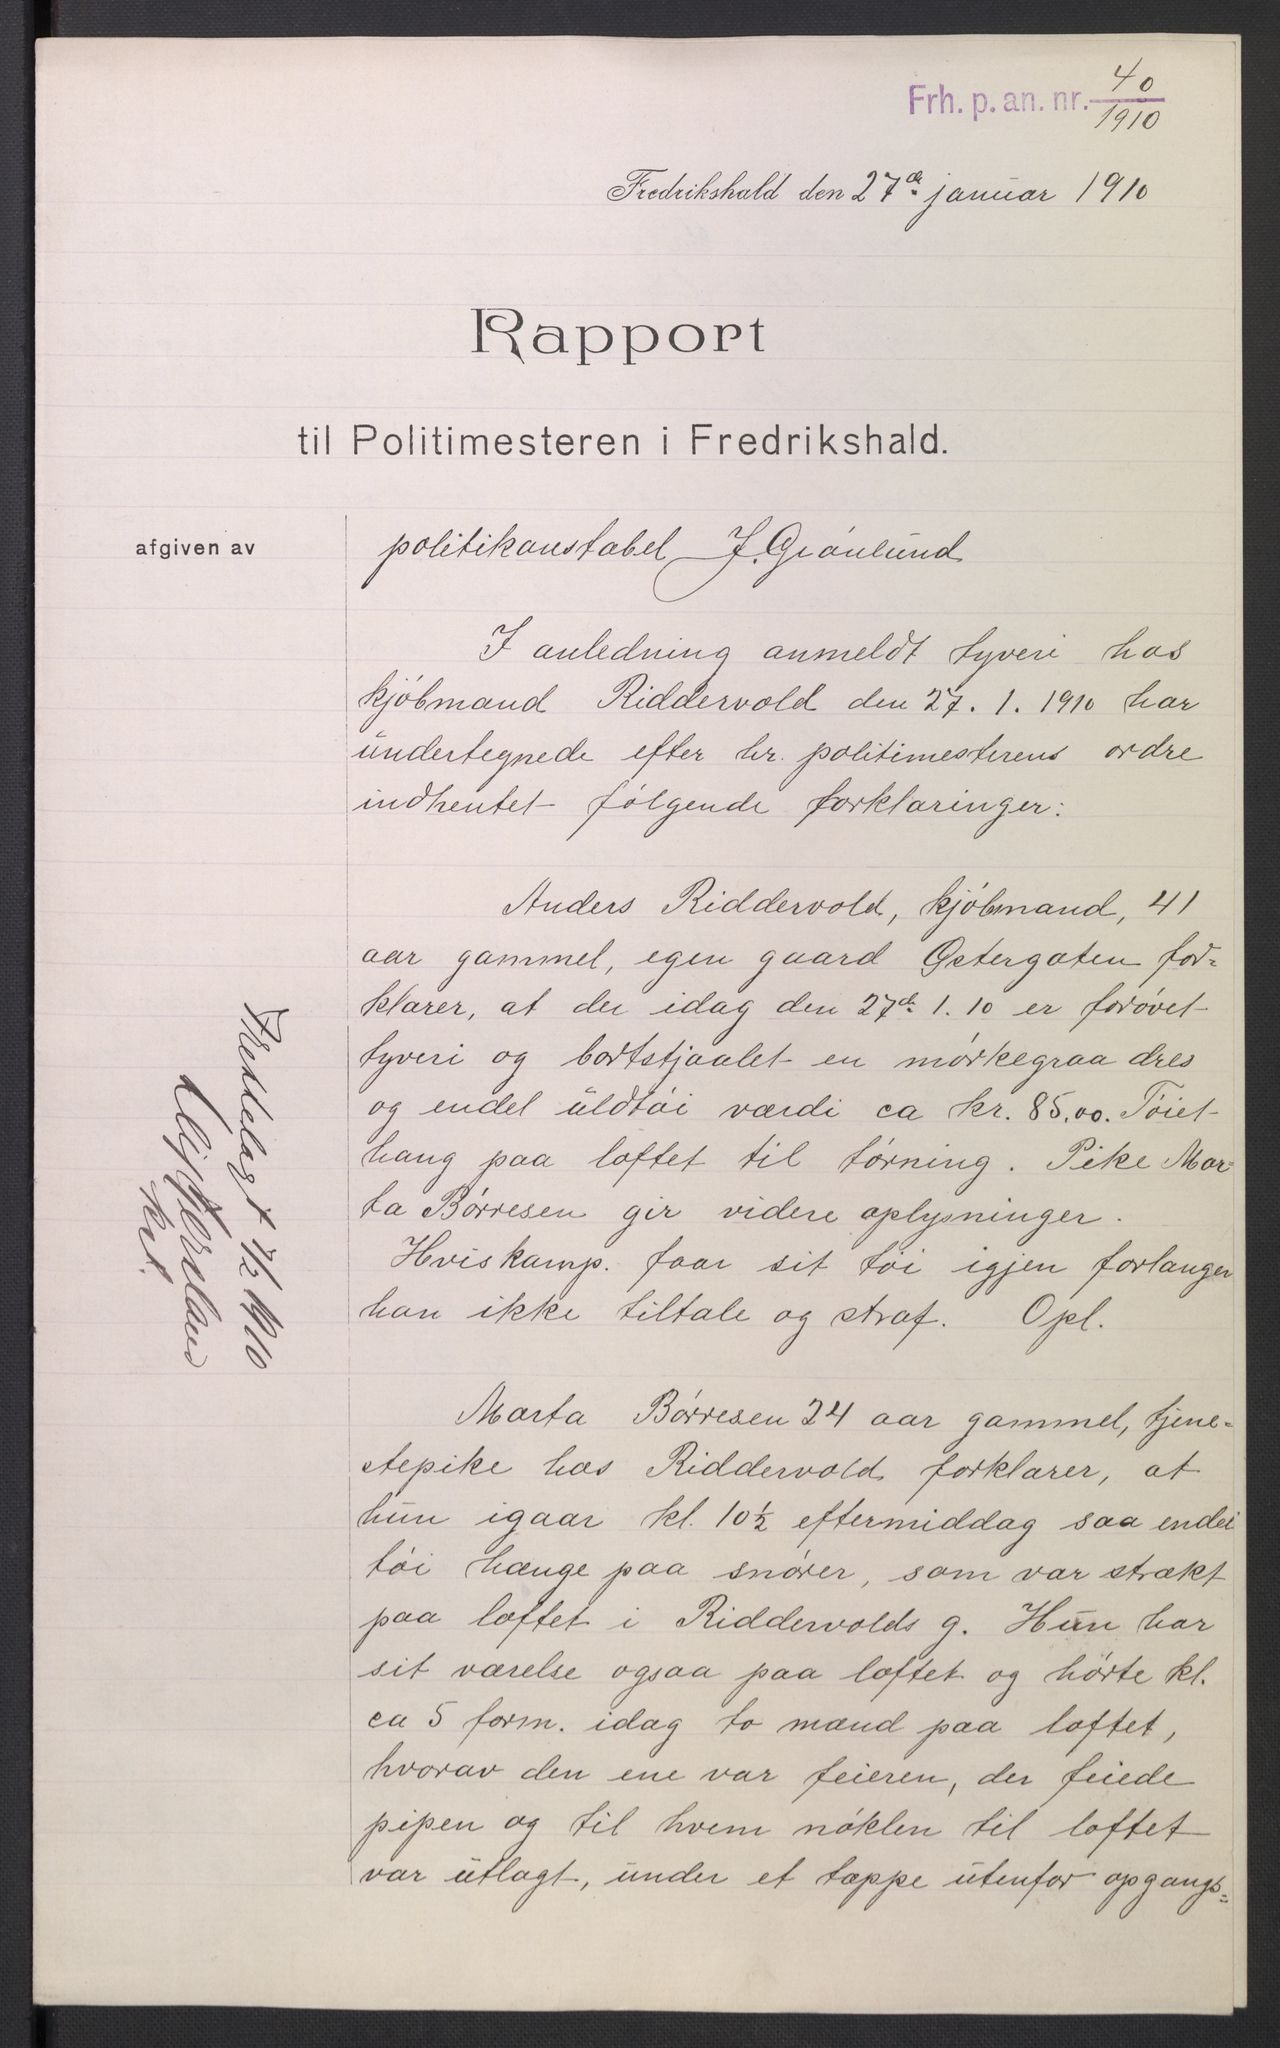 Frh. p. an. nr. 40/1910
Fredrikshald den 27de januar 1910
Rapport
til Politimesteren i Fredrikshald.
afgiven av
politikonstabel J. Grönlund
I anledning anmeldt tyveri hos
kjöbmand Riddervold den 27. 1. 1910 har
undertegnede efter hr. politimesterens ordre
indhentet fölgende forklaringer:
Anders Riddervold, kjöbmand, 41
aar gammel, egen gaard Østergaten for=
klarer, at der idag den 27de 1. 10 er forövet
tyveri og bortstjaalet en mörkegraa dres
og endel uldtöi værdi ca kr. 85,00. Töiet
hang paa loftet til törning. Pike Mar=
ta Börresen gir videre oplysninger.
Hvis kamp. faar sit töi igjen forlanger
han ikke tiltale og straf. Opl.
Marta Börresen 24 aar gammel, tjene=
stepike hos Riddervold forklarer, at
hun igaar kl. 10½ eftermiddag saa endel
töi hænge paa snörer, som var strækt
paa loftet i Riddervolds g. Hun har
sit værelse ogsaa paa loftet og hörte kl.
ca 5 form. idag to mænd paa loftet,
hvorav den ene var feieren, der feiede
pipen og til hvem nöklen til loftet
var utlagt, under et tæppe utenfor opgangs=
1910